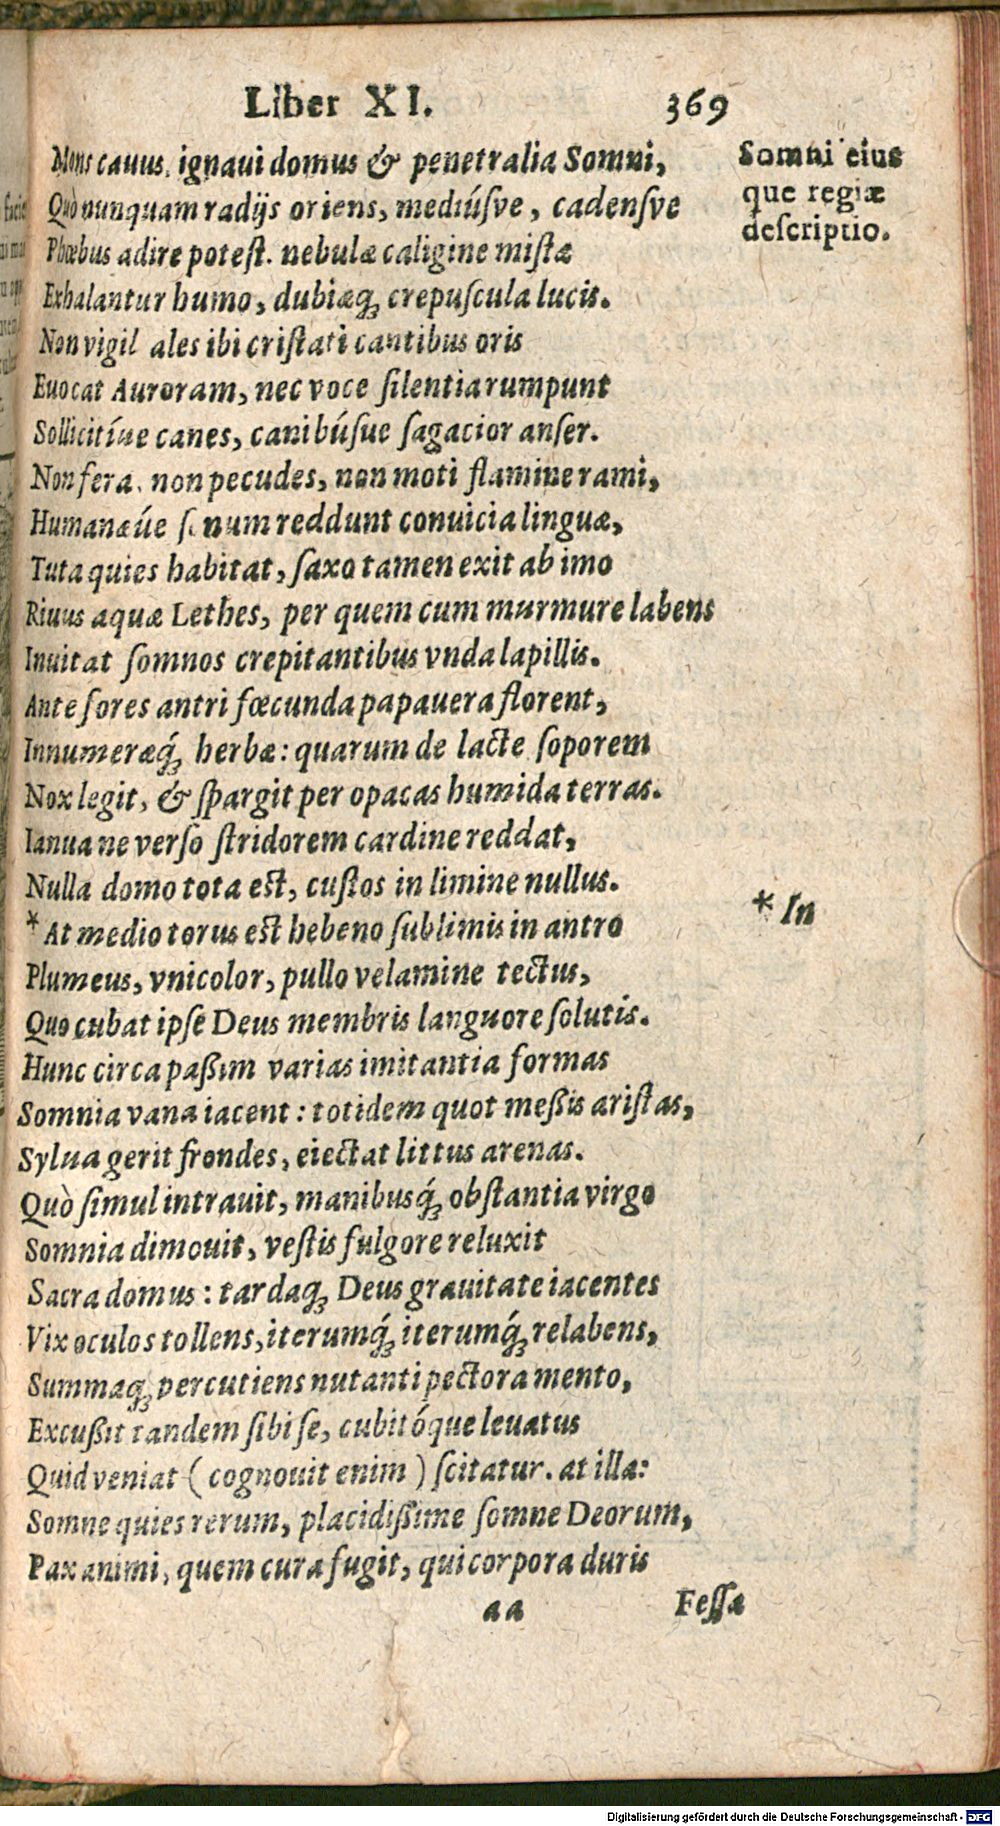 Liber XI. 369
Mons cauus, ignaui domus & penetralia Somni,
Quò nunquam radijs oriens, mediúſve, cadenſve
Phœbus adire poteſt. nebulæ caligine miſtæ
Exhalantur humo, dubiæq́ꝫ crepuſcula lucis.
Non vigil ales ibi criſtati cantibus oris
Euocat Auroram, nec voce ſilentia rumpunt
Sollicitíue canes, canibúſue ſagacior anſer.
Non fera, non pecudes, non moti flamine rami,
Humanæúe ſonum reddunt conuicia linguæ,
Tuta quies habitat, ſaxo tamen exit ab imo
Riuus aquæ Lethes, per quem cum murmure labens
Inuitat ſomnos crepitantibus vnda lapillis.
Ante fores antri fœcunda papauera florent,
Innumeræq́ꝫ herbæ: quarum de lacte ſoporem
Nox legit, & ſpargit per opacas humida terras.
Ianua ne verſo ſtridorem cardine reddat,
Nulla domo tota est, cuſtos in limine nullus.
*At medio torus est hebeno ſublimis in antro
Plumeus, vnicolor, pullo velamine tectus,
Quo cubat ipſe Deus membris languore ſolutis.
Hunc circa paßim varias imitantia formas
Somnia vana iacent: totidem quot meßis ariſtas,
Sylua gerit frondes, eiectat littus arenas.
Quò ſimul intrauit, manibusq́ꝫ obſtantia virgo
Somnia dimouit, veſtis fulgore reluxit
Sacra domus: tardaqꝫ Deus grauitate iacentes
Vix oculos tollens, iterumq́ꝫ iterumq́ꝫ relabens,
Summaqꝫ percutiens nutanti pectora mento,
Excußit tandem ſibi ſe, cubitóque leuatus
Quid veniat (cognouit enim) ſcitatur. at illa:
Somne quies rerum, placidißime ſomne Deorum,
Pax animi, quem cura fugit, qui corpora duris
aa Feſſa
Somni eius
que regiæ
deſcriptio.
*In
Digitalisierung gefördert durch die Deutsche Forschungsgemeinschaft - DFG